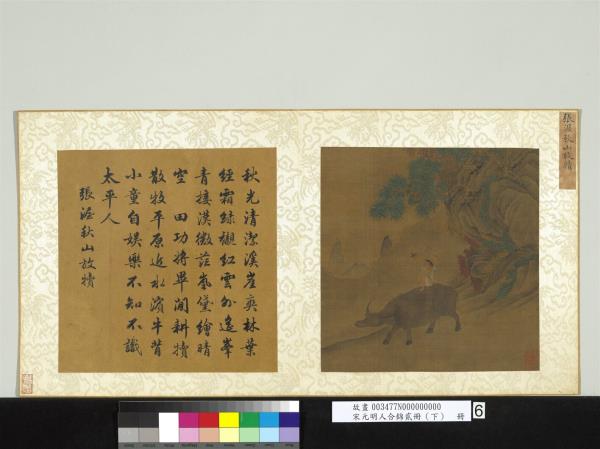 秋光清潔溪崖奕林葉
經霜綠襯紅雲外遙峯
青接漢微茫嵐黛繪晴
空　田功將畢閒耕犢
散牧平原近水濱牛背
小童自娛樂不知不識
太平人
張渥秋山放犢
張渥秋山放犢
故畫 003477N000000000
宋元明人合錦貳冊（下）　冊
6